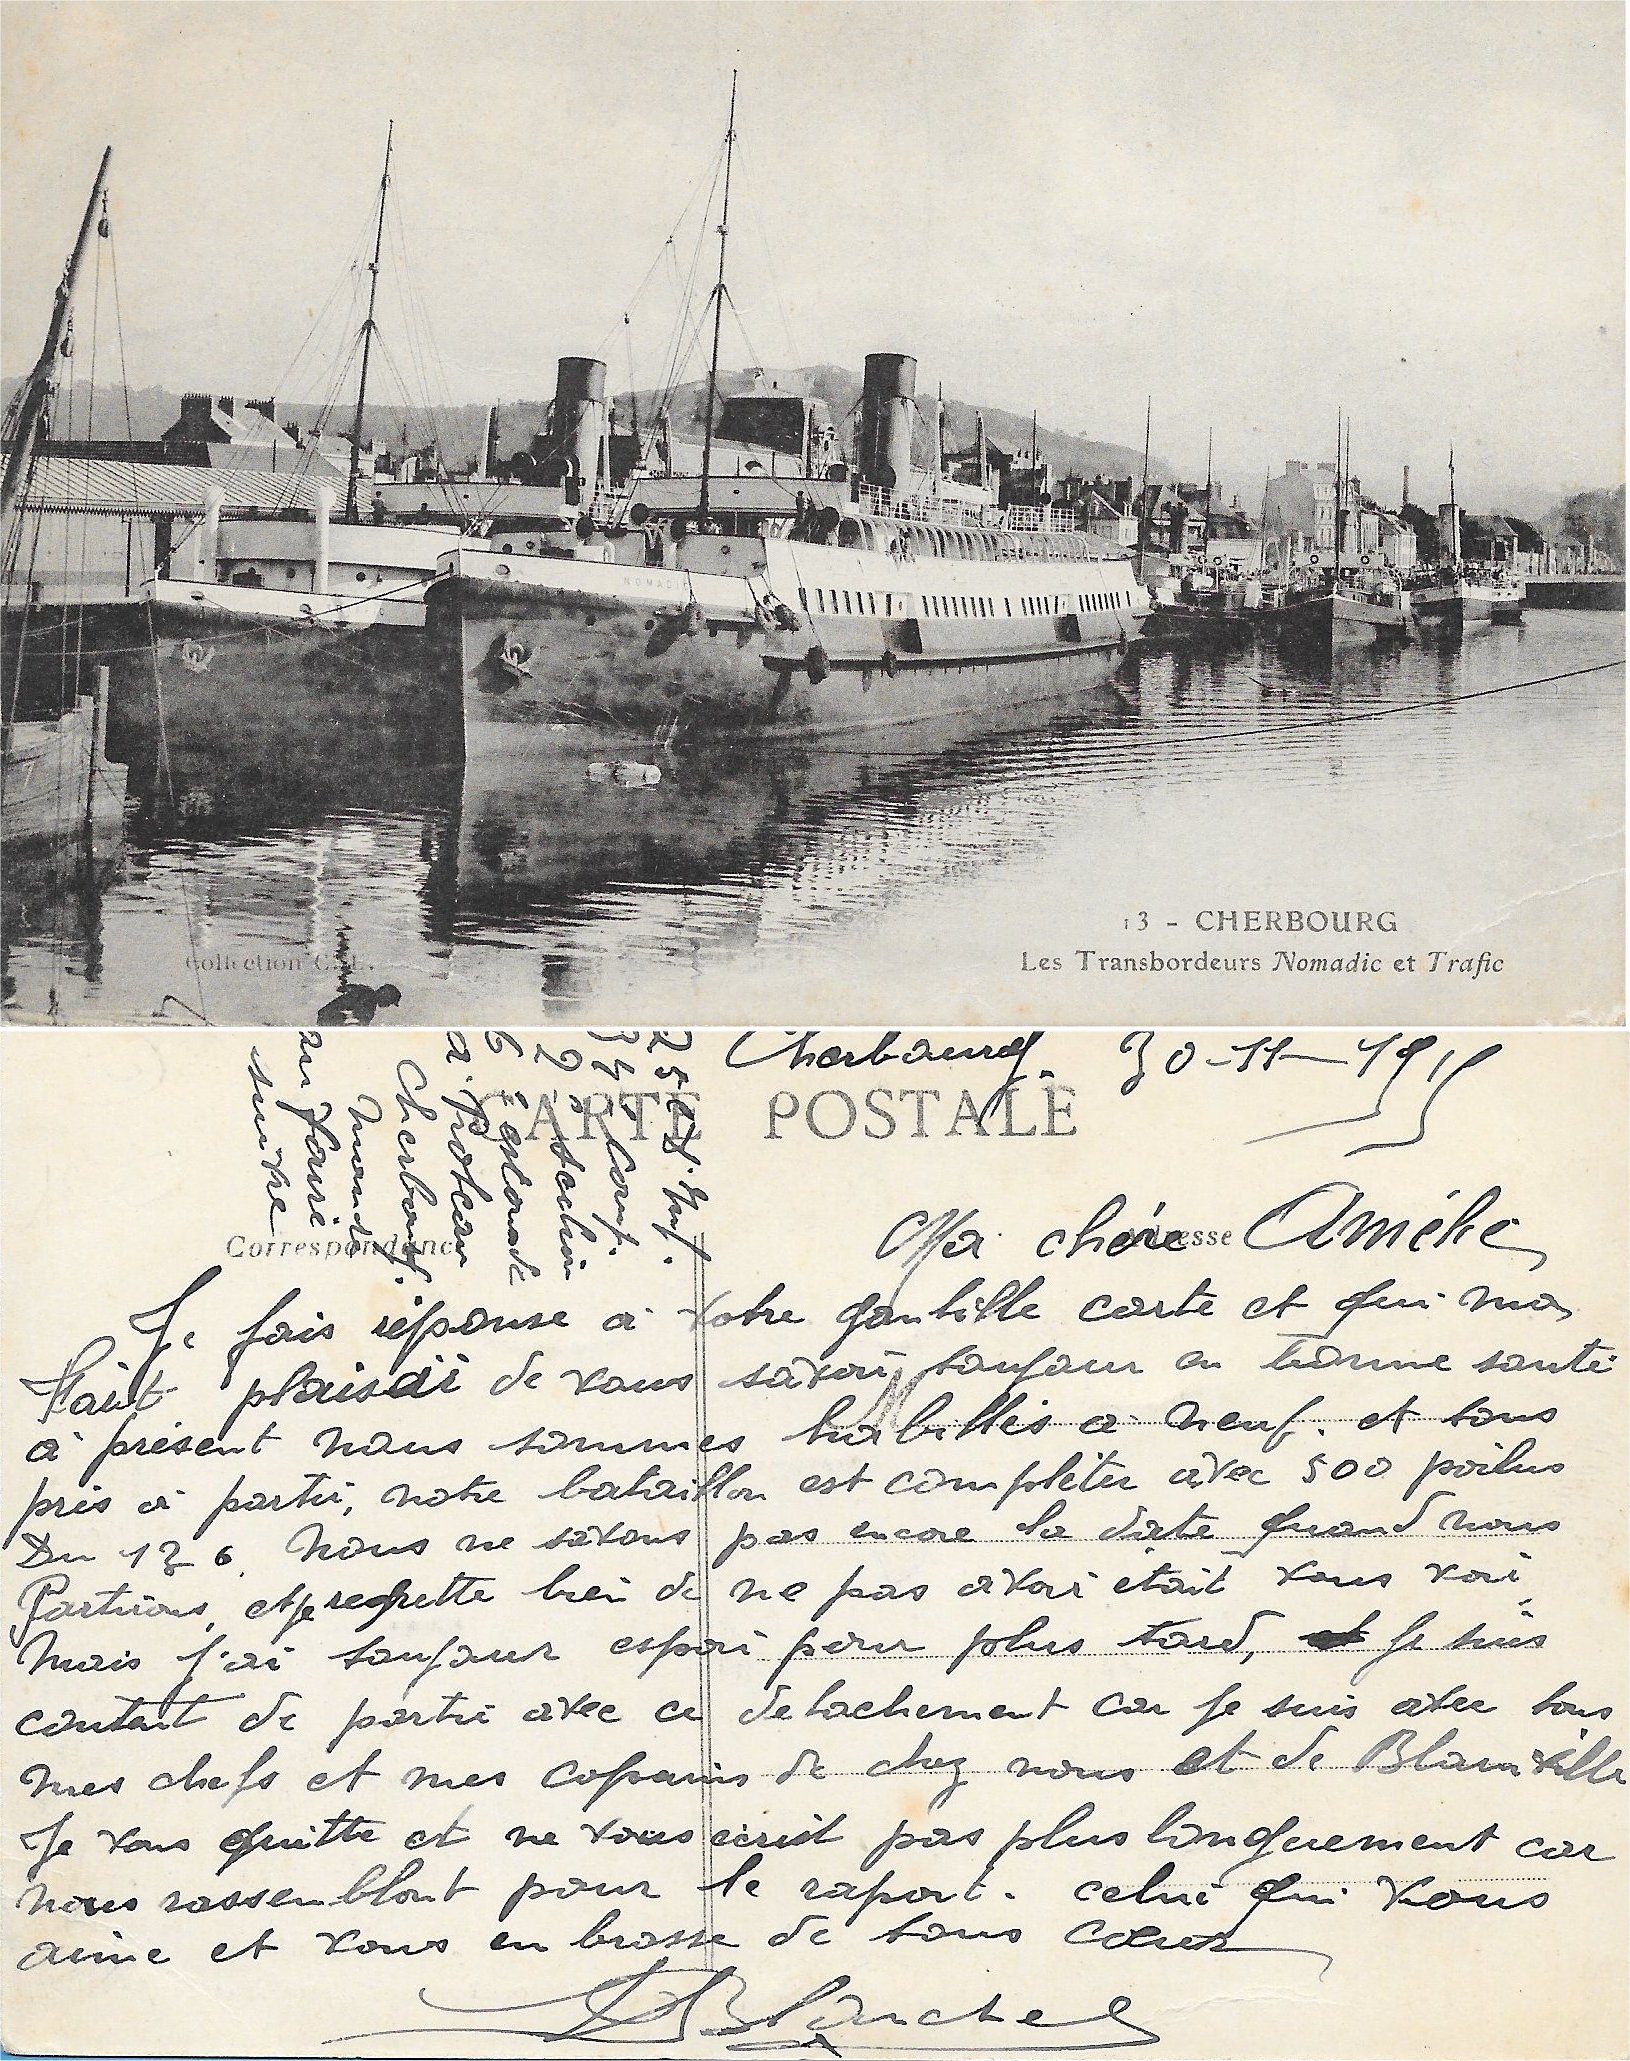 NOMADIC
13 - CHERBOURG
Les Transbordeurs Nomadic et Trafic
Collection C.L.
Cherbourg 30-11-1915
CARTE POSTALE
25e d'Inf.
34e Conf.
6e escouade
a
Cherbourg
Manche
au faire
suivre
Correspondance
Adresse
Ma chére Amélie
Je fais réponse a votre gantille carte et qui ma
Fait plaisir de vous savoir toujour en bonne santé
à présent nous sommes habillés a neuf. et tous
près a partir, notre bataillon est complèter avec 500 poilus
Du 136. Nous ne savons pas encore la date quand nous
Partirons, et je regrette bien de ne pas avoir était vous voir,
Mais j'ai toujour espoir pour plus tard, je suis
contant de partir avec ce detachement car je suis avec tous
mes chefs et mes copains de chez nous et de Blainville
Je vous quitte et ne vous écrist pas plus longuement car
nous rassemblont pour le raport. celui qui vous
aime et vous en brasse de tous cœur
Blanchet